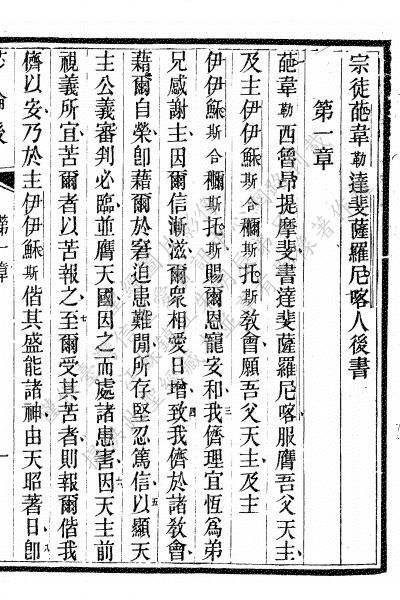 宗徒葩韋勒達斐薩羅尼喀人後書
第一章
葩韋勒西魯昂提摩斐書達斐薩羅尼喀服膺吾父天主
及主伊伊穌斯合穪斯托斯敎會願吾父天主及主
伊伊穌斯合穪斯托斯賜爾恩寵安和我儕理宜恆爲弟
兄感謝主因爾信漸滋爾衆相愛日增致我儕於諸敎會
藉爾自榮卽藉爾於窘迫患難閒所存堅忍篤信以顯天
主公義審判必臨並膺天國因之而處諸患害因天主前
視義所宜苦爾者以苦報之至爾受其苦者則報爾偕我
儕以安乃於主伊伊穌斯偕其盛能諸神由天昭著日卽
後 第一章